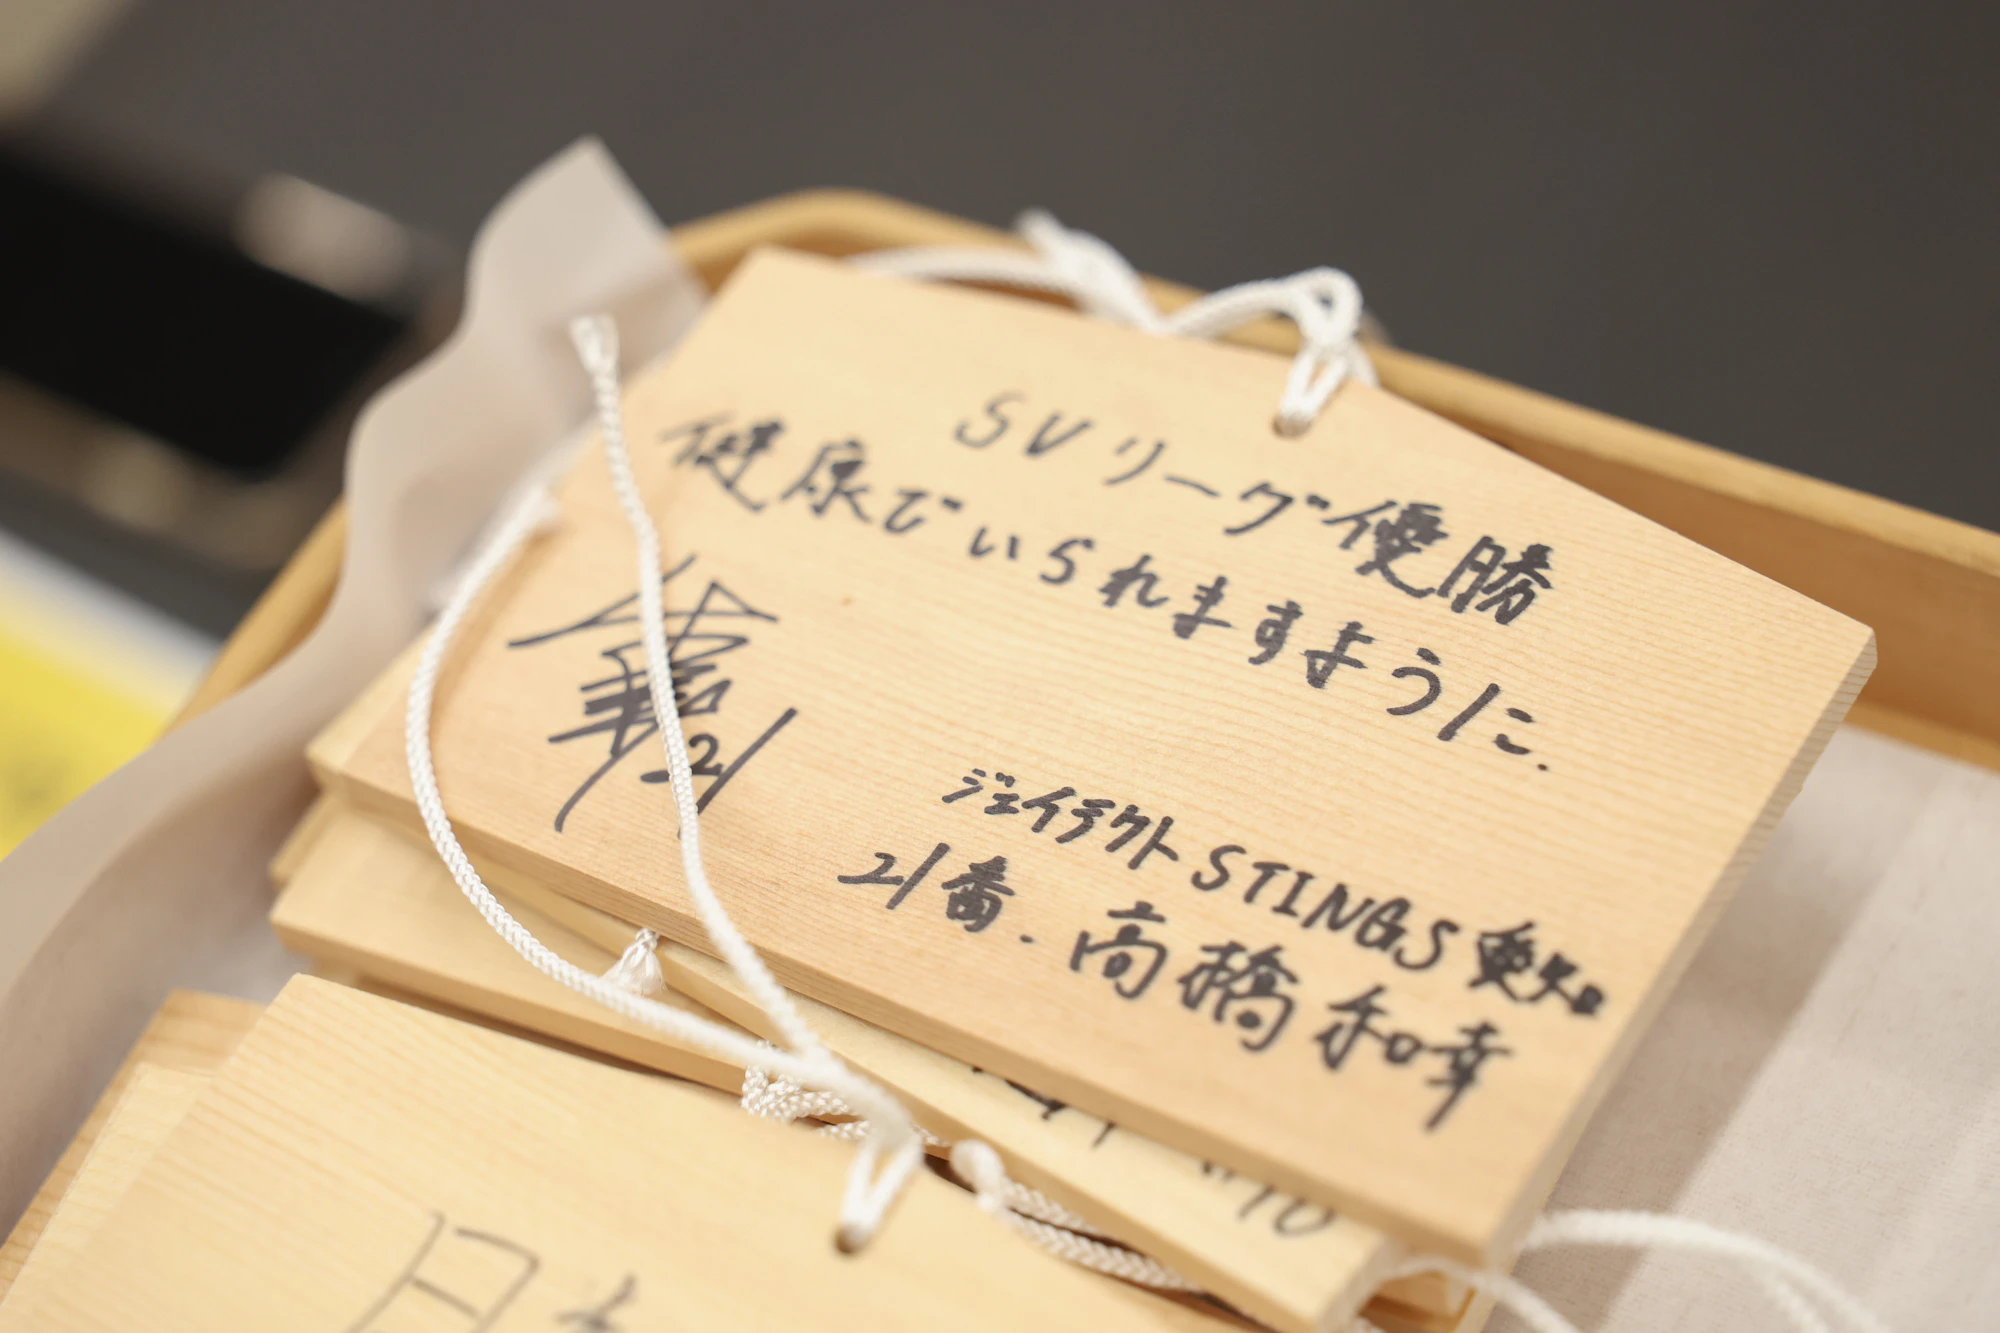 SVリーグ優勝
健康でいられますように.
21
ジェイテクトSTINGS愛知
21番.高橋和幸
日